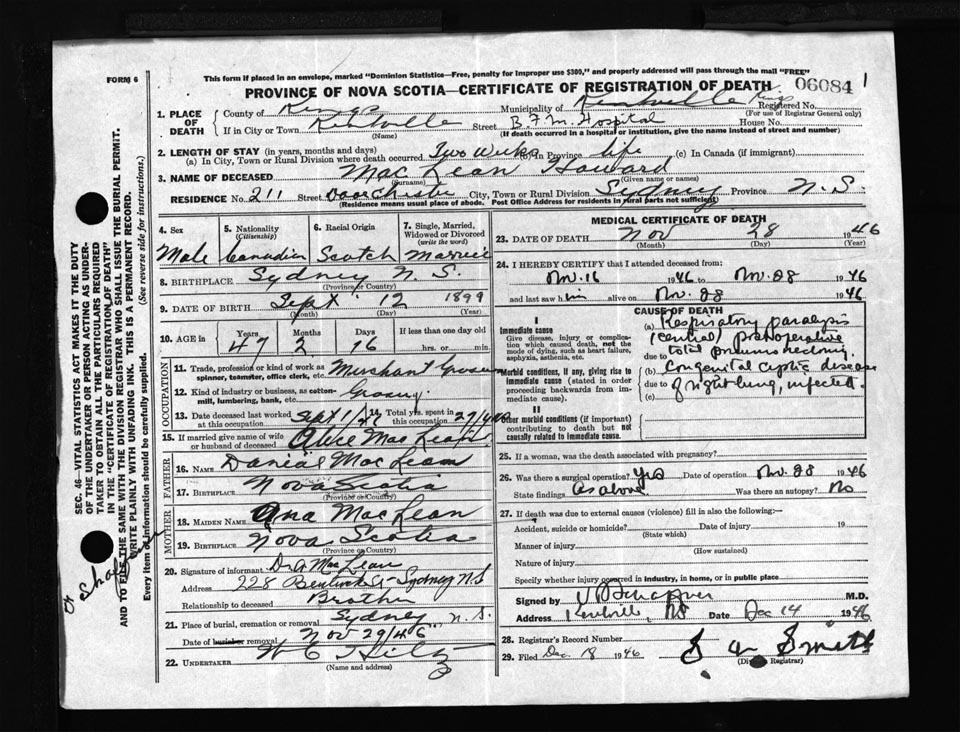 FORM 6
This form if placed in an envelope, marked "Dominion Statistics—Free, penalty for improper use $300," and properly addressed will pass through the mail "FREE"
PROVINCE OF NOVA SCOTIA—CERTIFICATE OF REGISTRATION OF DEATH
06084
1. PLACE OF DEATH
County of Kings Municipality of Kentville Kings Registered No.
(For use of Registrar General only)
If in City or Town Kentville Street B.F.M. Hospital House No.
(Name) (If death occurred in a hospital or institution, give the name instead of street and number)
2. LENGTH OF STAY (in years, months and days)
(a) In City, Town or Rural Division where death occurred Two Weeks (b) In Province life (c) In Canada (if immigrant)
3. NAME OF DECEASED Mac Lean Howard
(Surname) (Given name or names)
RESIDENCE No. 211 Street City, Town or Rural Division Sydney Province N.S.
(Residence means usual place of abode. Post Office Address for residents in rural parts not sufficient)
4. Sex
Male
5. Nationality
(Citizenship)
Canadian
6. Racial Origin
Scotch
7. Single, Married, Widowed or Divorced
(write the word)
Married
8. BIRTHPLACE Sydney N.S.
(Province or Country)
9. DATE OF BIRTH Sept 12 1899
(Month) (Day) (Year)
10. AGE in
Years Months Days If less than one day old
47 2 16 hrs. or min.
OCCUPATION
11. Trade, profession or kind of work as spinner, teamster, office clerk, etc. Merchant Grocer
12. Kind of industry or business, as cotton-mill, lumbering, bank, etc. Grocery
13. Date deceased last worked at this occupation Sept 1/46
14. Total yrs. spent in this occupation 27 yrs
15. If married give name of wife or husband of deceased Alice Mac Lean
FATHER
16. NAME Danial Mac Lean
17. BIRTHPLACE Nova Scotia
(Province or Country)
MOTHER
18. MAIDEN NAME Ana Mac Lean
19. BIRTHPLACE Nova Scotia
(Province or Country)
20. Signature of informant D. A Mac Lean
Address 228 Bentinck St Sydney N.S
Relationship to deceased Brother
21. Place of burial, cremation or removal Sydney, N.S.
Date of burial or removal Nov 29/46
22. UNDERTAKER W E Hiltz
(Name and address)
MEDICAL CERTIFICATE OF DEATH
23. DATE OF DEATH Nov 28 1946
(Month) (Day) (Year)
24. I HEREBY CERTIFY that I attended deceased from:
Nov. 16 1946 to Nov. 28 1946
and last saw him alive on Nov. 28 1946
CAUSE OF DEATH
I
Immediate cause
Give disease, injury or complication which caused death, not the mode of dying, such as heart failure, asphyxia, asthenia, etc.
(a) Respiratory paralysis
(central) postoperative
due to total pneumonectomy.
Morbid conditions, if any, giving rise to immediate cause (stated in order proceeding backwards from immediate cause).
(b) Congenital cystic disease
due to of right lung, infected.
(c)
II
Other morbid conditions (if important) contributing to death but not causally related to immediate cause.
25. If a woman, was the death associated with pregnancy?
26. Was there a surgical operation? Yes Date of operation Nov. 28 1946
State findings as above Was there an autopsy? No
27. If death was due to external causes (violence) fill in also the following:—
Accident, suicide or homicide? Date of injury 19
(State which)
Manner of injury
(How sustained)
Nature of injury
Specify whether injury occurred in industry, in home, or in public place
Signed by M.D.
Address Kentville, NS Date Dec 14 1946
28. Registrar's Record Number
29. Filed Dec. 18 1946 Smith
(Division Registrar)
SEC. 46—VITAL STATISTICS ACT MAKES IT THE DUTY
OF THE UNDERTAKER OR PERSON ACTING AS UNDER-
TAKER TO OBTAIN ALL THE PARTICULARS REQUIRED
IN THE "CERTIFICATE OF REGISTRATION OF DEATH"
AND TO FILE THE SAME WITH THE DIVISION REGISTRAR WHO SHALL ISSUE THE BURIAL PERMIT.
WRITE PLAINLY WITH UNFADING INK. THIS IS A PERMANENT RECORD.
Every item of information should be carefully supplied. (See reverse side for instructions.)